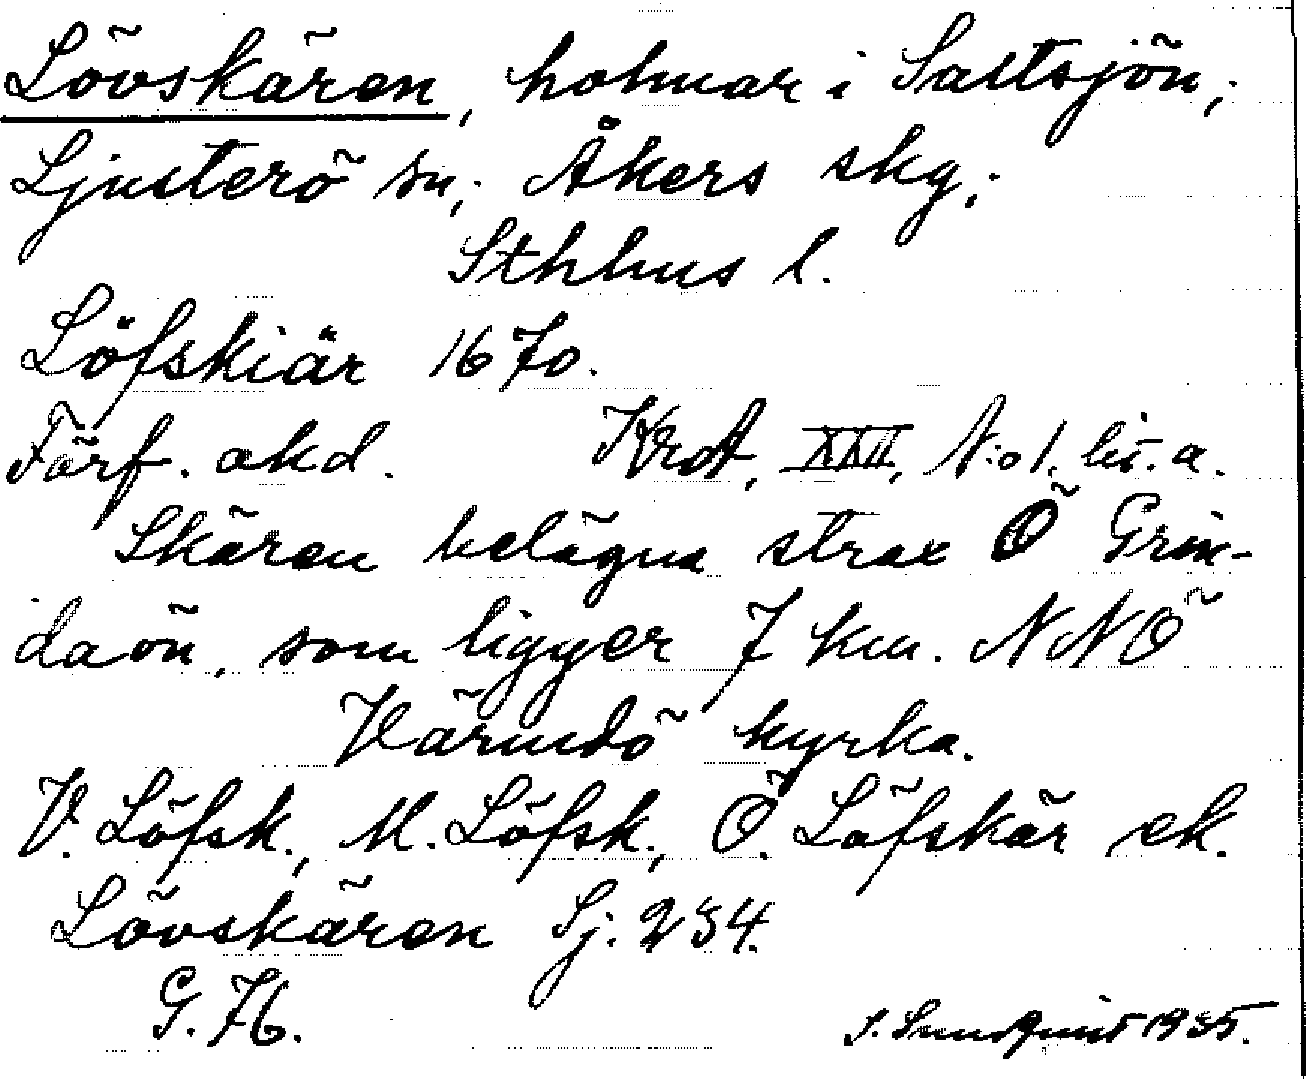 Lövskären, holmar i Saltsjön;
Ljusterö sn; Åkers skg;
Sthlms l.
Löfskiär 1670.
Förf. akd. KrA, XXII, N:o 1. lit. a.
Skären belägna strax Ö Grin-
daön, som ligger 7 km. NNÖ
Värmdö kyrka.
V. Löfsk., M. Löfsk., Ö. Löfskär ek.
Lövskären Sj. 234.
G. H. S. Sundquist 1935.